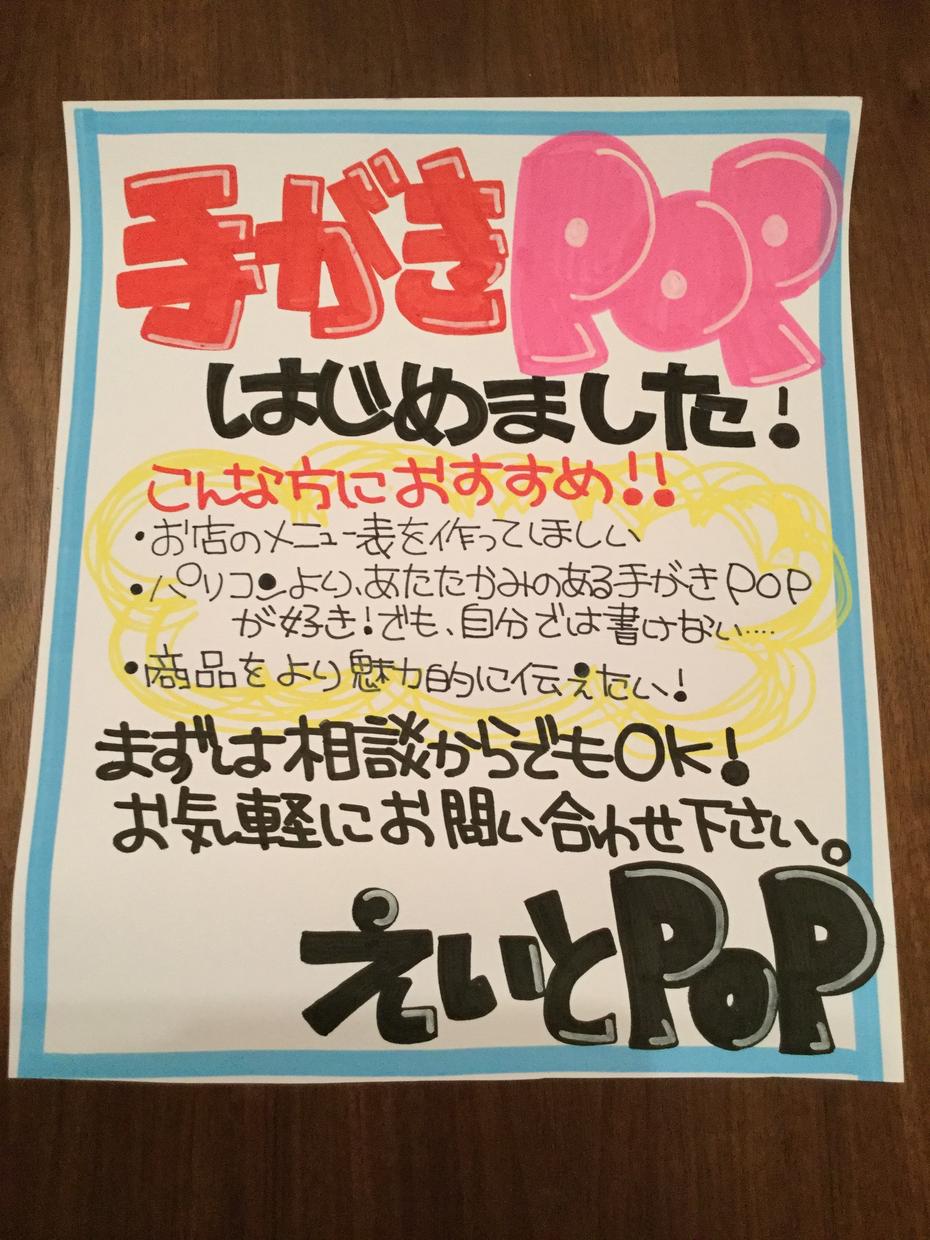 手がきPOP
はじめました!
こんな方におすすめ!!
・お店のメニュー表を作ってほしい
・パソコンより、あたたかみのある手がきPOP
が好き!でも、自分では書けない····
・商品をより魅力的に伝えたい!
まずは相談からでもOK!
お気軽にお問い合わせ下さい。
えいとPOP